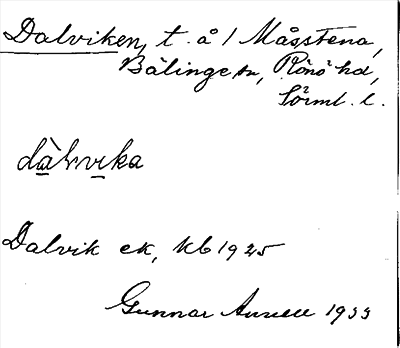 Dalviken, t. å / Måsstena,
Bälinge sn, Rönö hd,
Sörml. l.
dàlvika
Dalvik ek, kb 1925
Gunnar 1933